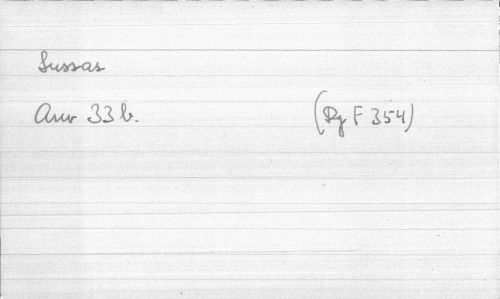 Sussas
Anv 33 b. (Dg F 354)